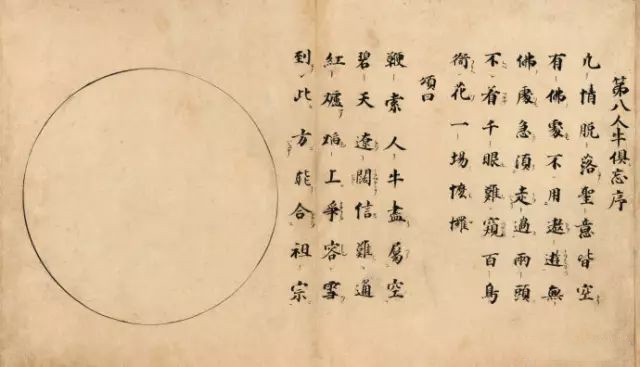 第八人牛俱忘序
凢情脱落聖意皆空
有佛處不用遨遊無
佛處急須走過兩頭
不着千眼難窺百鳥
衘花一場懡㦬
頌曰
鞭索人牛盡屬空
碧天遼闊信難通
紅爐焰上爭容雪
到此方能合祖宗